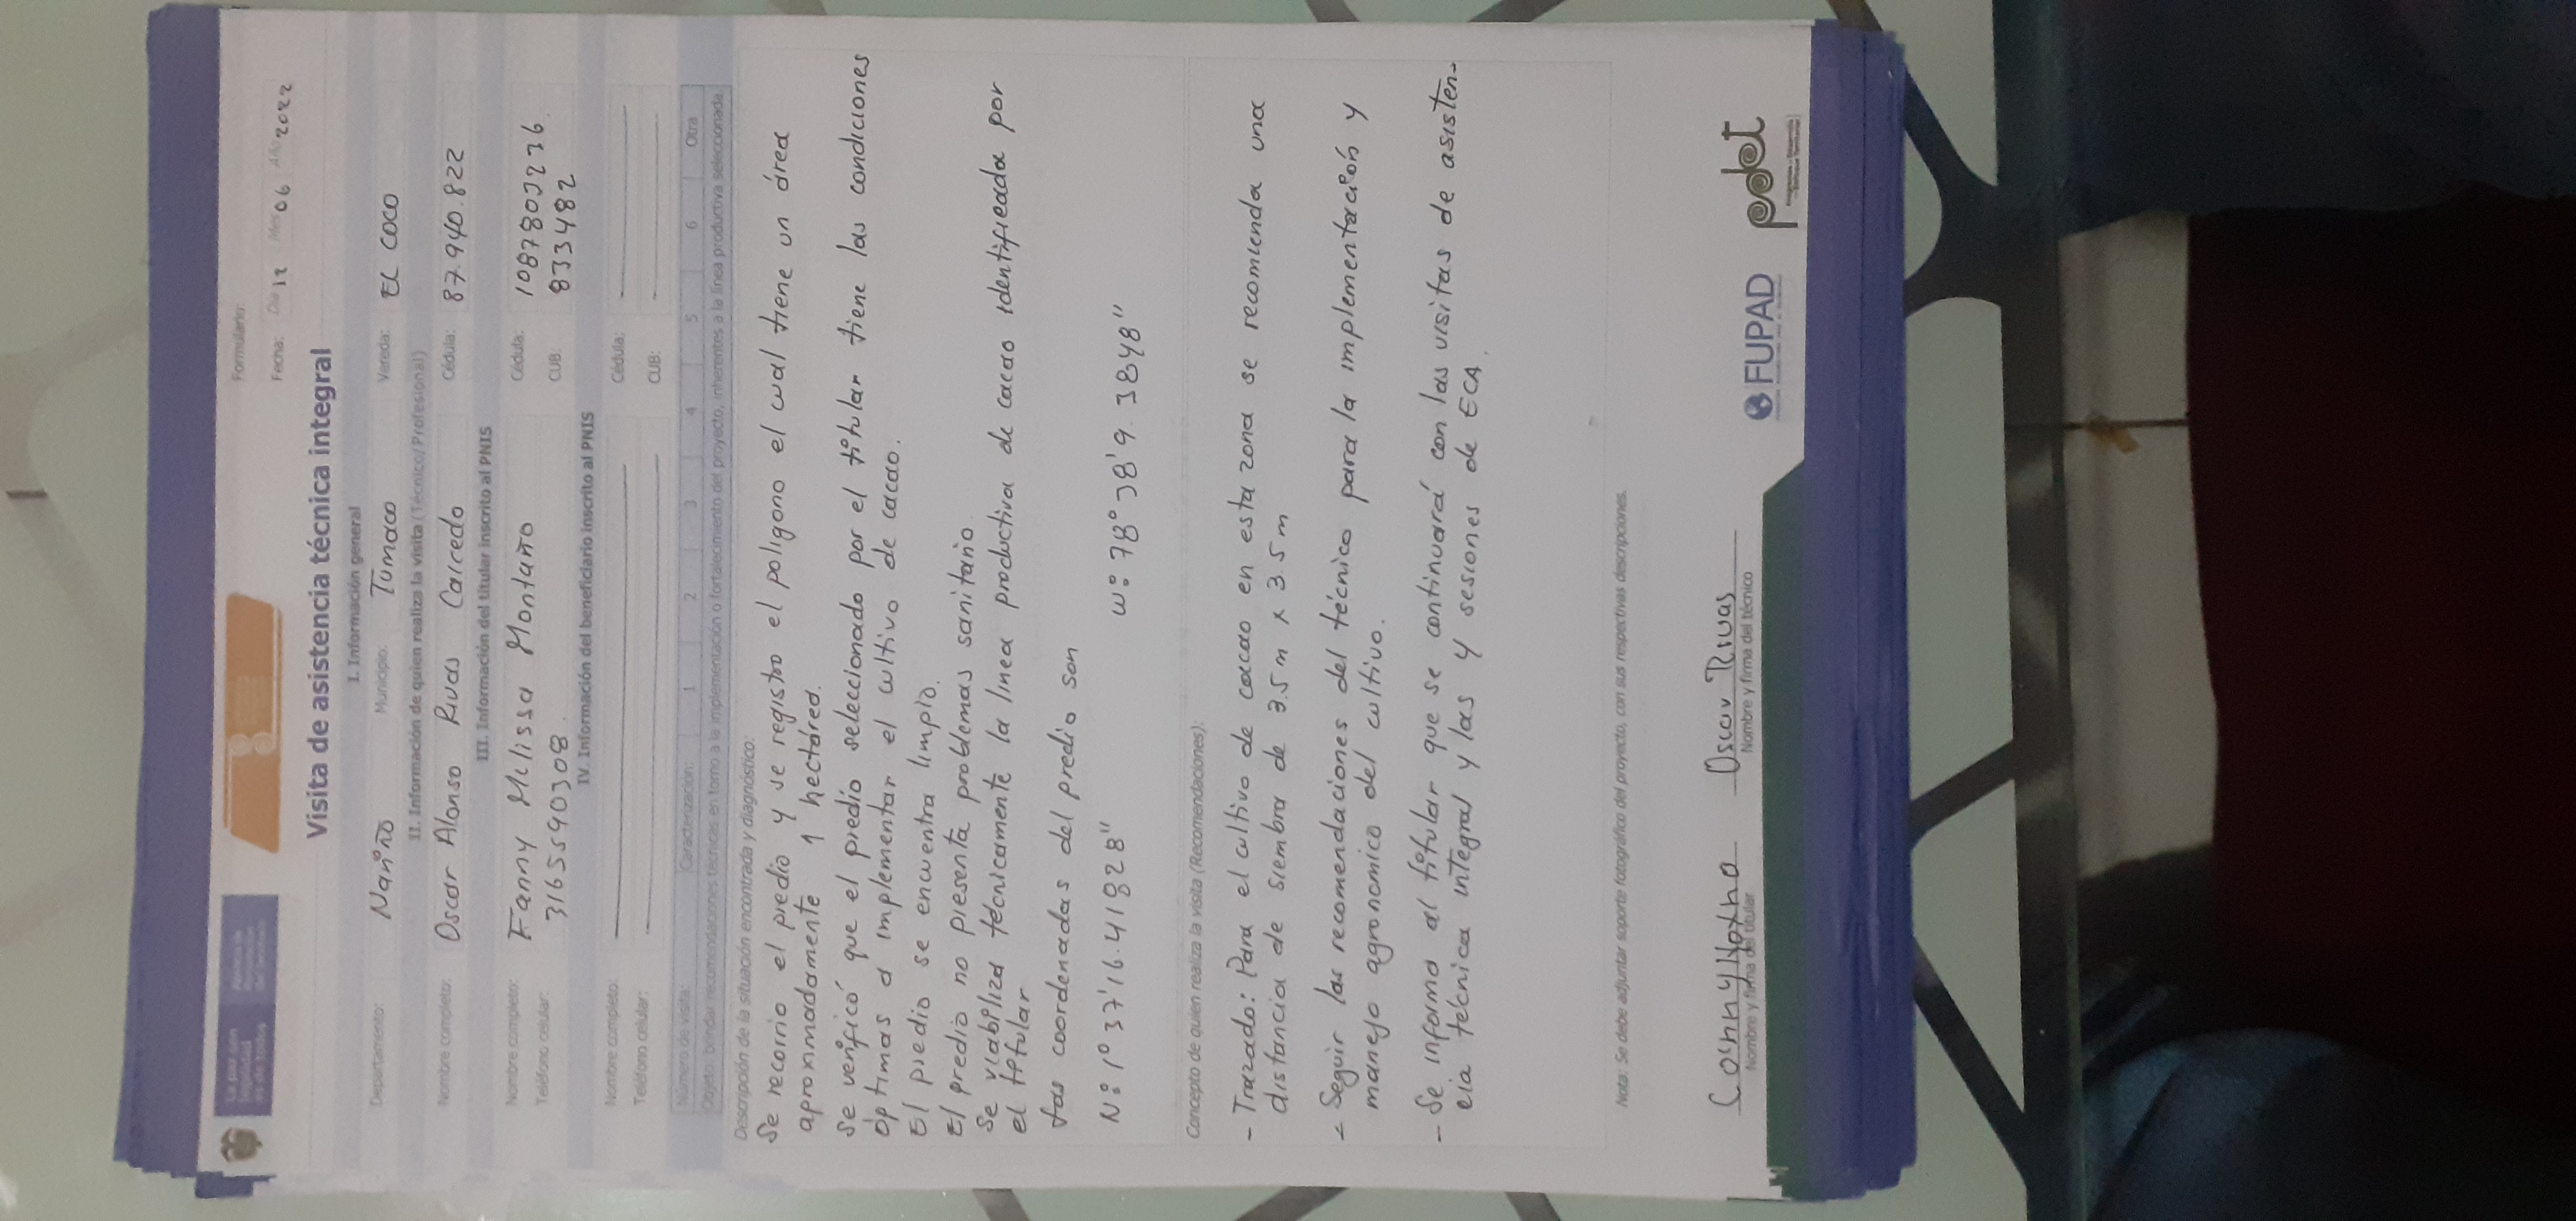 La paz con legalidad es de todos
Formulario:
Fecha: Día 12 Mes 06 Año 2022
Visita de asistencia técnica integral
I. Información general
Departamento: Nariño Municipio: Tumaco Vereda: EL COCO
II. Información de quien realiza la visita (Técnico/Profesional)
Nombre completo: Oscar Alonso Rivas Caicedo Cédula: 87.940.822
III. Información del titular inscrito al PNIS
Nombre completo: Fanny Melissa Montaño Cédula: 1087803236
Teléfono celular: 3165590308. CUB: 8333482
IV. Información del beneficiario inscrito al PNIS
Nombre completo: Cédula:
Teléfono celular: CUB:
Número de visita: Caracterización: 1 2 3 4 5 6 Otra
Objeto: brindar recomendaciones técnicas en torno a la implementación o fortalecimiento del proyecto, inherentes a la línea productiva seleccionada.
Descripción de la situación encontrada y diagnóstico:
Se recorrio el predio y se registro el poligono el cual tiene un área
aproximadamente 1 hectárea.
Se verificó que el predio seleccionado por el titular tiene las condiciones
óptimas a implementar el cultivo de cacao.
El predio se encuentra limpio.
El predio no presenta problemas sanitario.
Se viabiliza técnicamente la linea productiva de cacao identificada por
el titular
las coordenadas del predio son
N: 1° 37' 16.41828" W: 78° 38' 9.3848"
Concepto de quien realiza la visita (Recomendaciones):
- Trazado: Para el cultivo de cacao en esta zona se recomienda una
distancia de siembra de 3.5 m x 3.5 m
- Seguir las recomendaciones del técnico para la implementación y
manejo agronomico del cultivo.
- Se informa al titular que se continuará con las visitas de asisten-
cia técnica integral y las y sesiones de ECA.
Nota: Se debe adjuntar soporte fotográfico del proyecto, con sus respectivas descripciones.
Oscar Rivas
Nombre y firma del titular Nombre y firma del técnico
FUPAD pdet